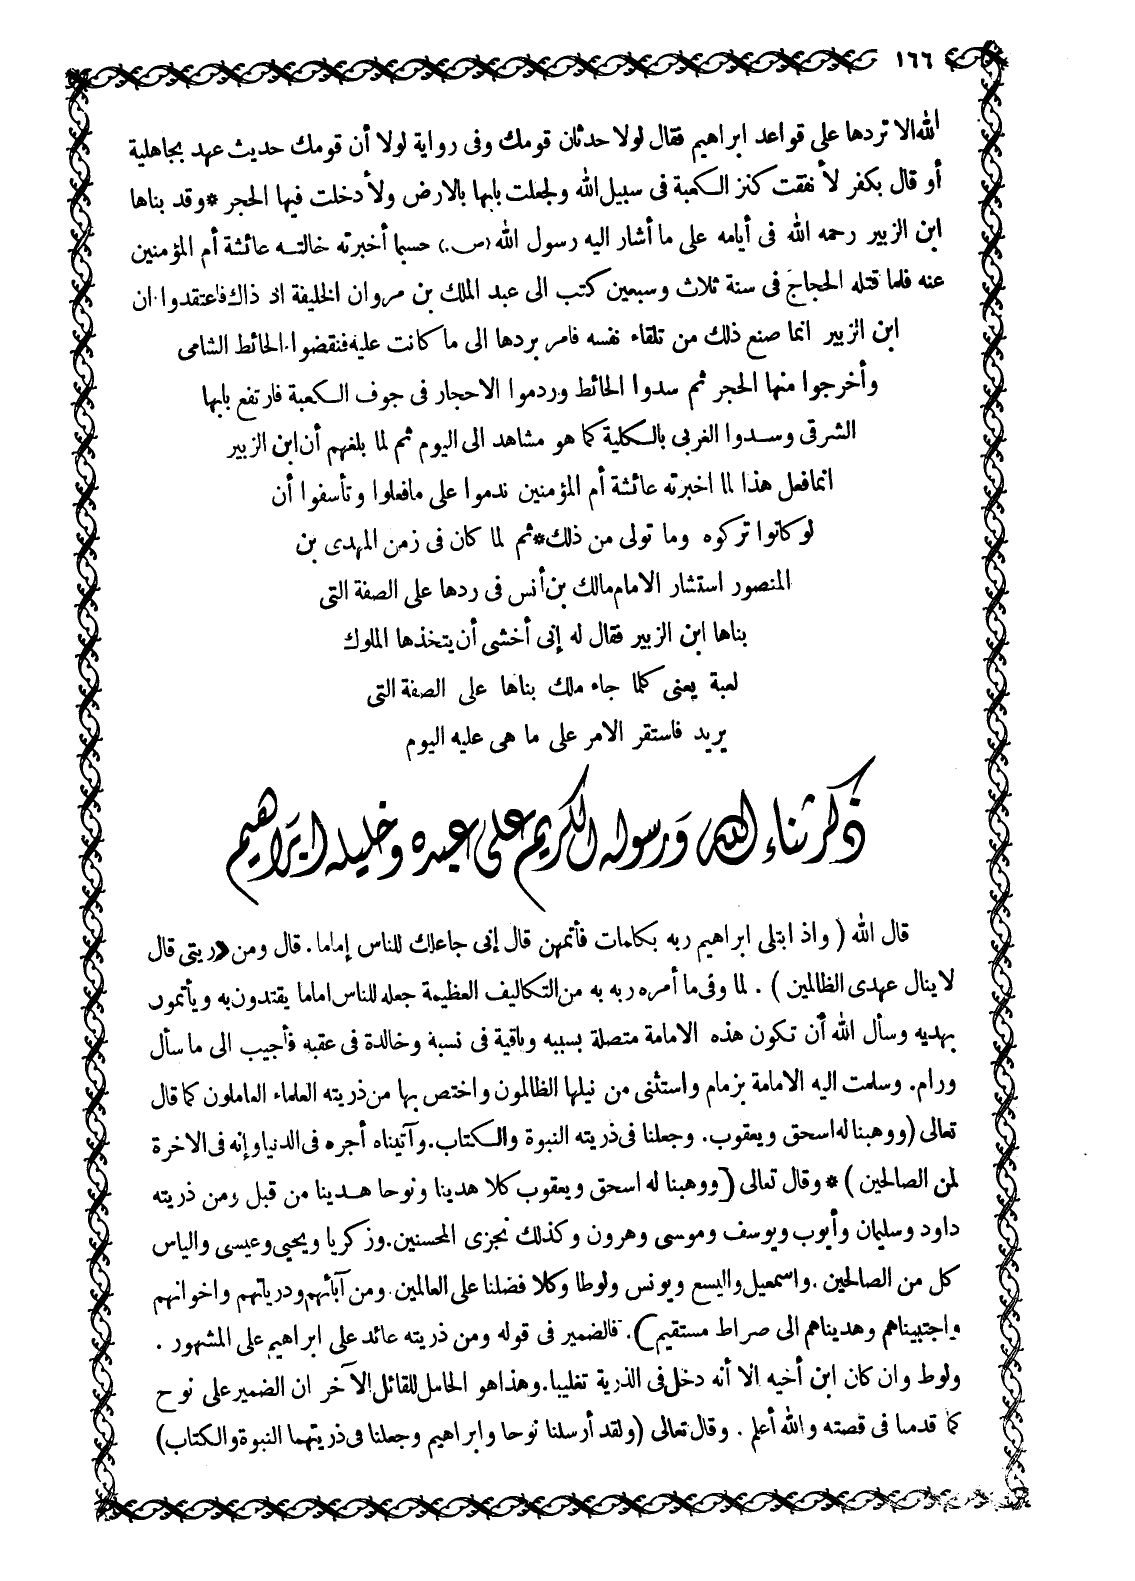 ١٦٦
الله الا تردها على قواعد ابراهيم فقال لولا حدثان قومك وفى رواية لولا أن قومك حديث عهد بجاهلية
أو قال بكفر لأنفقت كنز الكعبة فى سبيل الله ولجعلت بابها بالارض ولأدخلت فيها الحجر *وقد بناها
ابن الزبير رحمه الله فى أيامه على ما أشار اليه رسول الله (ص.) حسبما أخبرته خالته عائشة أم المؤمنين
عنه فلما قتله الحجاج فى سنة ثلاث وسبعين كتب الى عبد الملك بن مروان الخليفة اذ ذاك فاعتقدوا ان
ابن الزبير انما صنع ذلك من تلقاء نفسه فامر بردها الى ما كانت عليه فنقضوا الحائط الشامى
وأخرجوا منها الحجر ثم سدوا الحائط وردموا الاحجار فى جوف الكعبة فارتفع بابها
الشرقى وسدوا الغربى بالكلية كما هو مشاهد الى اليوم ثم لما بلغهم أن ابن الزبير
انما فعل هذا لما اخبرته عائشة أم المؤمنين ندموا على ما فعلوا وتأسفوا أن
لو كانوا تركوه وما تولى من ذلك*ثم لما كان فى زمن المهدى بن
المنصور استشار الامام مالك بن أنس فى ردها على الصفة التى
بناها ابن الزبير فقال له إنى أخشى أن يتخذها الملوك
لعبة يعنى كلما جاء ملك بناها على الصفة التى
يريد فاستقر الامر على ما هى عليه اليوم
ذكر ثناء الله ورسوله الكريم على عبده وخليله ابراهيم
قال الله ( واذ ابتلى ابراهيم ربه بكلمات فأتمهن قال إنى جاعلك للناس إماما. قال ومن ذريتى قال
لا ينال عهدى الظالمين ) . لما وفى ما أمره ربه به من التكاليف العظيمة جعله للناس اماما يقتدون به ويأتمون
بهديه وسأل الله أن تكون هذه الامامة متصلة بسببه وباقية فى نسبة وخالدة فى عقبه فأجيب الى ما سأل
ورام. وسلمت اليه الامامة بزمام واستثنى من نيلها الظالمون واختص بها من ذريته العلماء العاملون كما قال
تعالى (ووهبنا له اسحق ويعقوب. وجعلنا فى ذريته النبوة والكتاب.وآتيناه أجره فى الدنيا وإنه فى الاخرة
لمن الصالحين ) * وقال تعالى (ووهبنا له اسحق ويعقوب كلا هدينا ونوحا هدينا من قبل ومن ذريته
داود وسليمان وأيوب ويوسف وموسى وهرون وكذلك نجزى المحسنين.وزكريا ويحيى وعيسى والياس
كل من الصالحين .واسمعيل واليسع ويونس ولوطا وكلا فضلنا على العالمين. ومن آبائهم وذرياتهم واخوانهم
واجتبيناهم وهديناهم الى صراط مستقيم). فالضمير فى قوله ومن ذريته عائد على ابراهيم على المشهور .
ولوط وان كان ابن أخيه الا أنه دخل فى الذرية تغليبا.وهذا هو الحامل للقائل الآخر ان الضمير على نوح
كما قدمنا فى قصته والله أعلم . وقال تعالى (ولقد أرسلنا نوحا وابراهيم وجعلنا فى ذريتهما النبوة والكتاب)